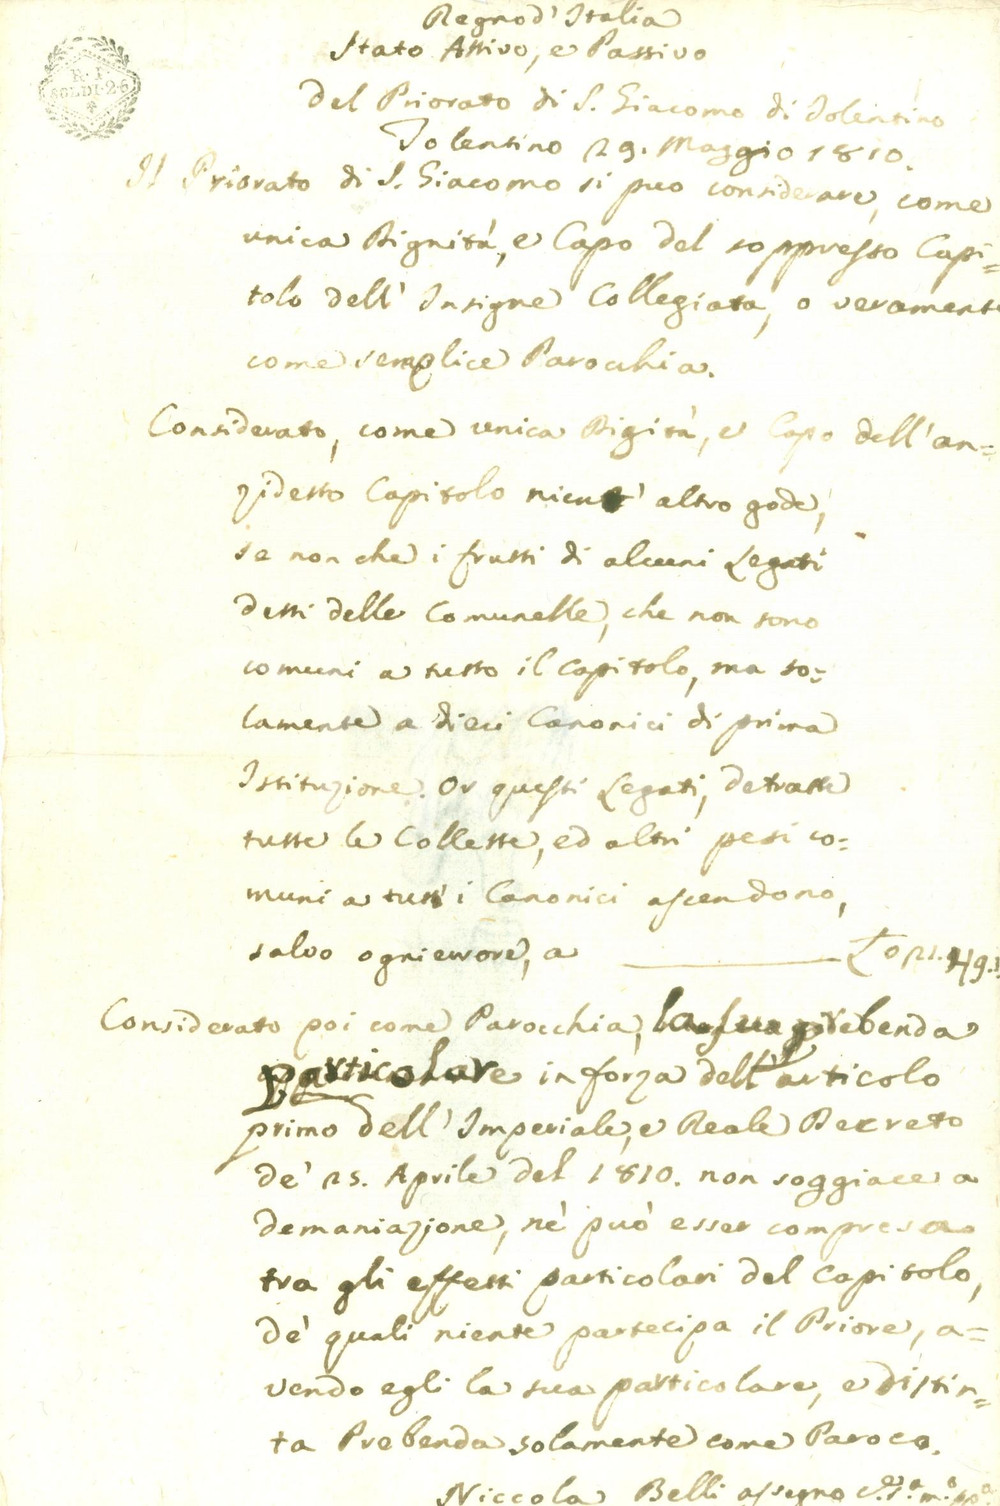 R. I.
SOLDI · 2 · 6
Regno d' Italia
Stato Attivo, e Passivo
Del Priorato di S. Giacomo di Tolentino
Tolentino 29. Maggio 1810.
Il Priorato di S. Giacomo si puo considerare, come
unica Dignità, e Capo del soppresso Capi=
tolo dell' Insigne Collegiata, o veramente
come semplice Parocchia.
Considerato, come unica Digità, e Capo dell' an=
zidetto Capitolo nient' altro gode,
se non che i frutti di alcuni Legati
detti delle Comunelle, che non sono
comuni a tutto il Capitolo, ma so=
lamente a dieci Canonici di prima
Istituzione. Or questi Legati, detratte
tutte le Collette, ed altri pesi co=
muni a tutt' i Canonici ascendono,
salvo ogni errore, a
Considerato poi come Parocchia, la sua prebenda
particolare in forza dell' articolo
primo dell' Imperiale, e Reale Decreto
de' 25. Aprile del 1810. non soggiace a
demaniazione, nè può esser compresa
tra gli effetti particolari del Capitolo,
de' quali niente partecipa il Priore, a=
vendo egli la sua particolare, e distin=
ta Prebenda solamente come Paroco.
Niccola Belli assegno